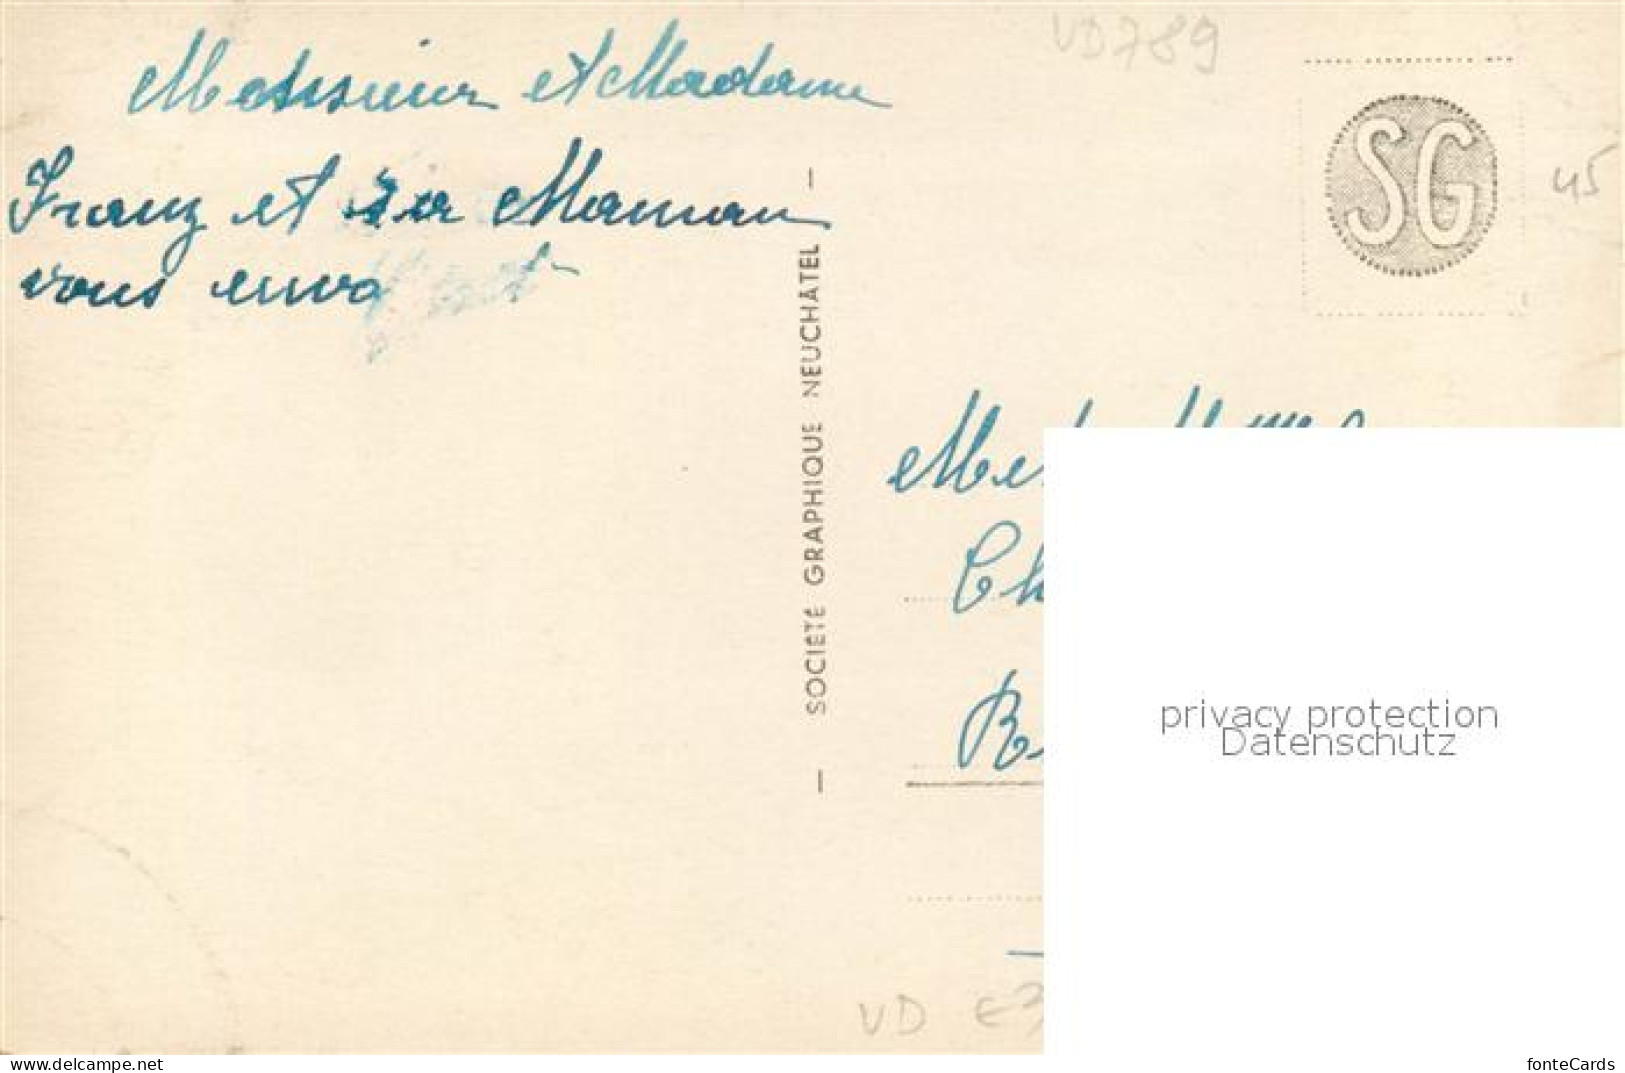 Monsieur et Madame
Franz et sa Maman
vous envo
VD789
SG
45
— SOCIÉTÉ GRAPHIQUE NEUCHÂTEL —
Ch
privacy protection
Datenschutz
VD
delcampe.net
fonteCards